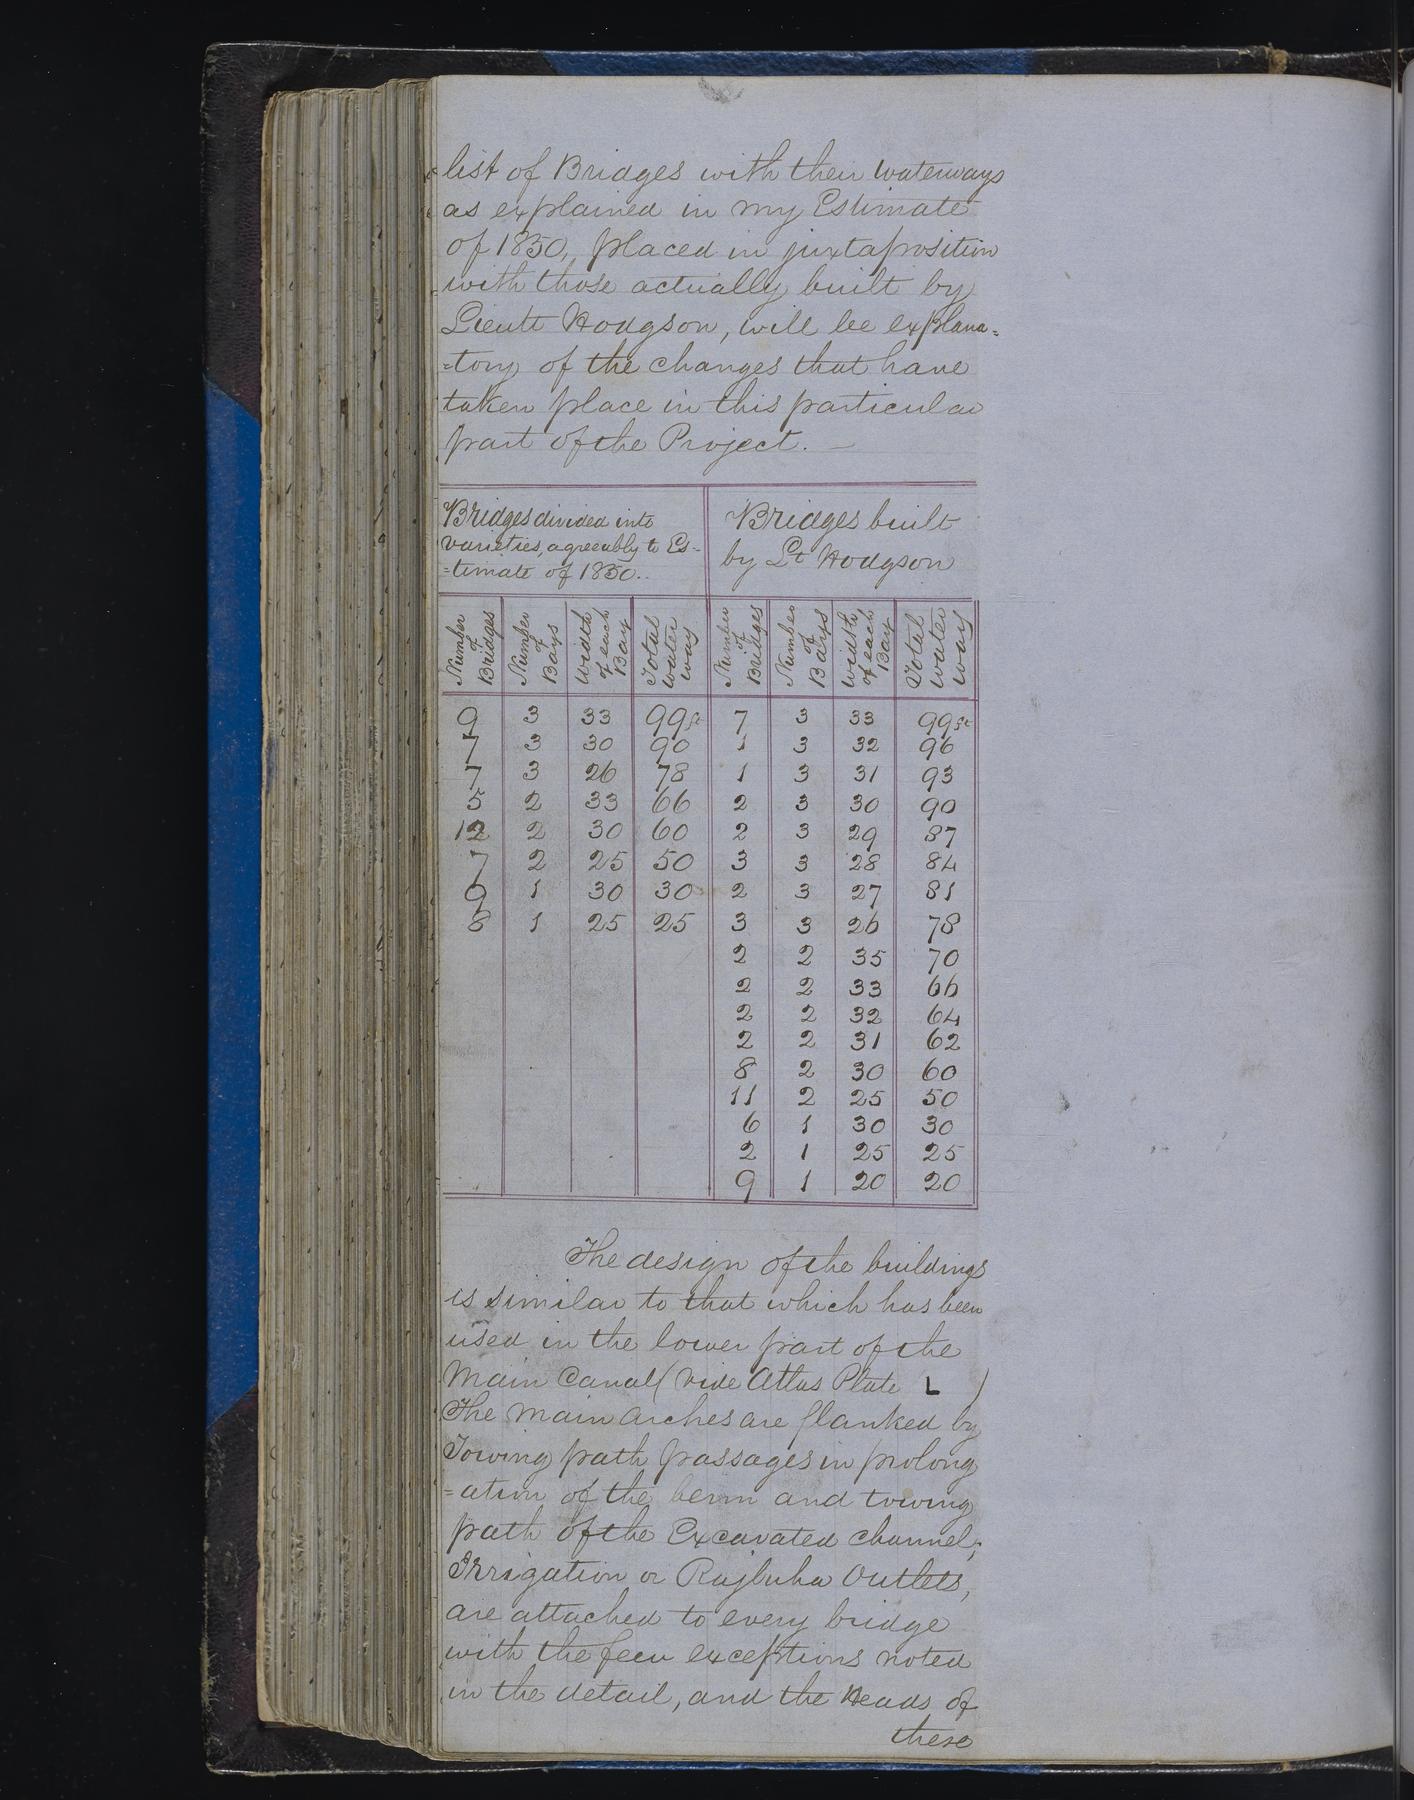 list of Bridges with their waterways
as explained in my Estimate
of 1850, placed in juxtaposition
with those actually built by
Lieutt Hodgson, will be explana=
=tory of the changes that have
taken place in this particular
part of the Project. —
Bridges divided into
varieties, agreeably to Es-
=timate of 1850..
Bridges built
by Lt Hodgson
Number of Bridges | Number of Bays | Width of each Bay | Total water way | Number of Bridges | Number of Bays | Width of each Bay | Total water way
9 3 33 99ft 7 3 33 99ft
7 3 30 90 1 3 32 96
7 3 26 78 1 3 31 93
5 2 33 66 2 3 30 90
12 2 30 60 2 3 29 87
7 2 25 50 3 3 28 84
9 1 30 30 2 3 27 81
8 1 25 25 3 3 26 78
2 2 35 70
2 2 33 66
2 2 32 64
2 2 31 62
8 2 30 60
11 2 25 50
6 1 30 30
2 1 25 25
9 1 20 20
The design of the buildings
is similar to that which has been
used in the lower part of the
Main Canal (vide Atlas Plate L )
The main arches are flanked by
Towing path passages in prolong
=ation of the berm and towing
path of the Excavated channel;
Irrigation or Rajbuha Outlets,
are attached to every bridge
with the few exceptions noted
in the detail, and the Heads of
these